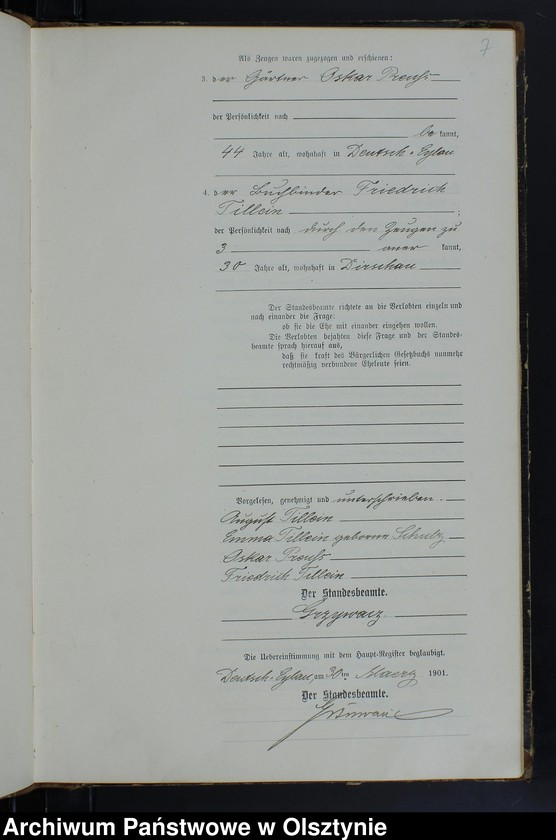 7
Als Zeugen waren zugezogen und erschienen:
3. der Gärtner Oskar Preuß
der Persönlichkeit nach
be kannt,
44 Jahre alt, wohnhaft in Deutsch-Eylau
4. der Buchbinder Friedrich
Tillein ;
der Persönlichkeit nach durch den Zeugen zu
3 aner kannt,
30 Jahre alt, wohnhaft in Dirschau
Der Standesbeamte richtete an die Verlobten einzeln und
nach einander die Frage:
ob sie die Ehe mit einander eingehen wollen.
Die Verlobten bejahten diese Frage und der Standes-
beamte sprach hierauf aus,
daß sie kraft des Bürgerlichen Gesetzbuchs nunmehr
rechtmäßig verbundene Eheleute seien.
Vorgelesen, genehmigt und unterschrieben.
August Tillein
Emma Tillein geborene Schulz
Oskar Preuß
Friedrich Tillein
Der Standesbeamte.
Grzywacz
Die Uebereinstimmung mit dem Haupt-Register beglaubigt.
Deutsch-Eylau, am 30ten Maerz 1901.
Der Standesbeamte.
Archiwum Państwowe w Olsztynie